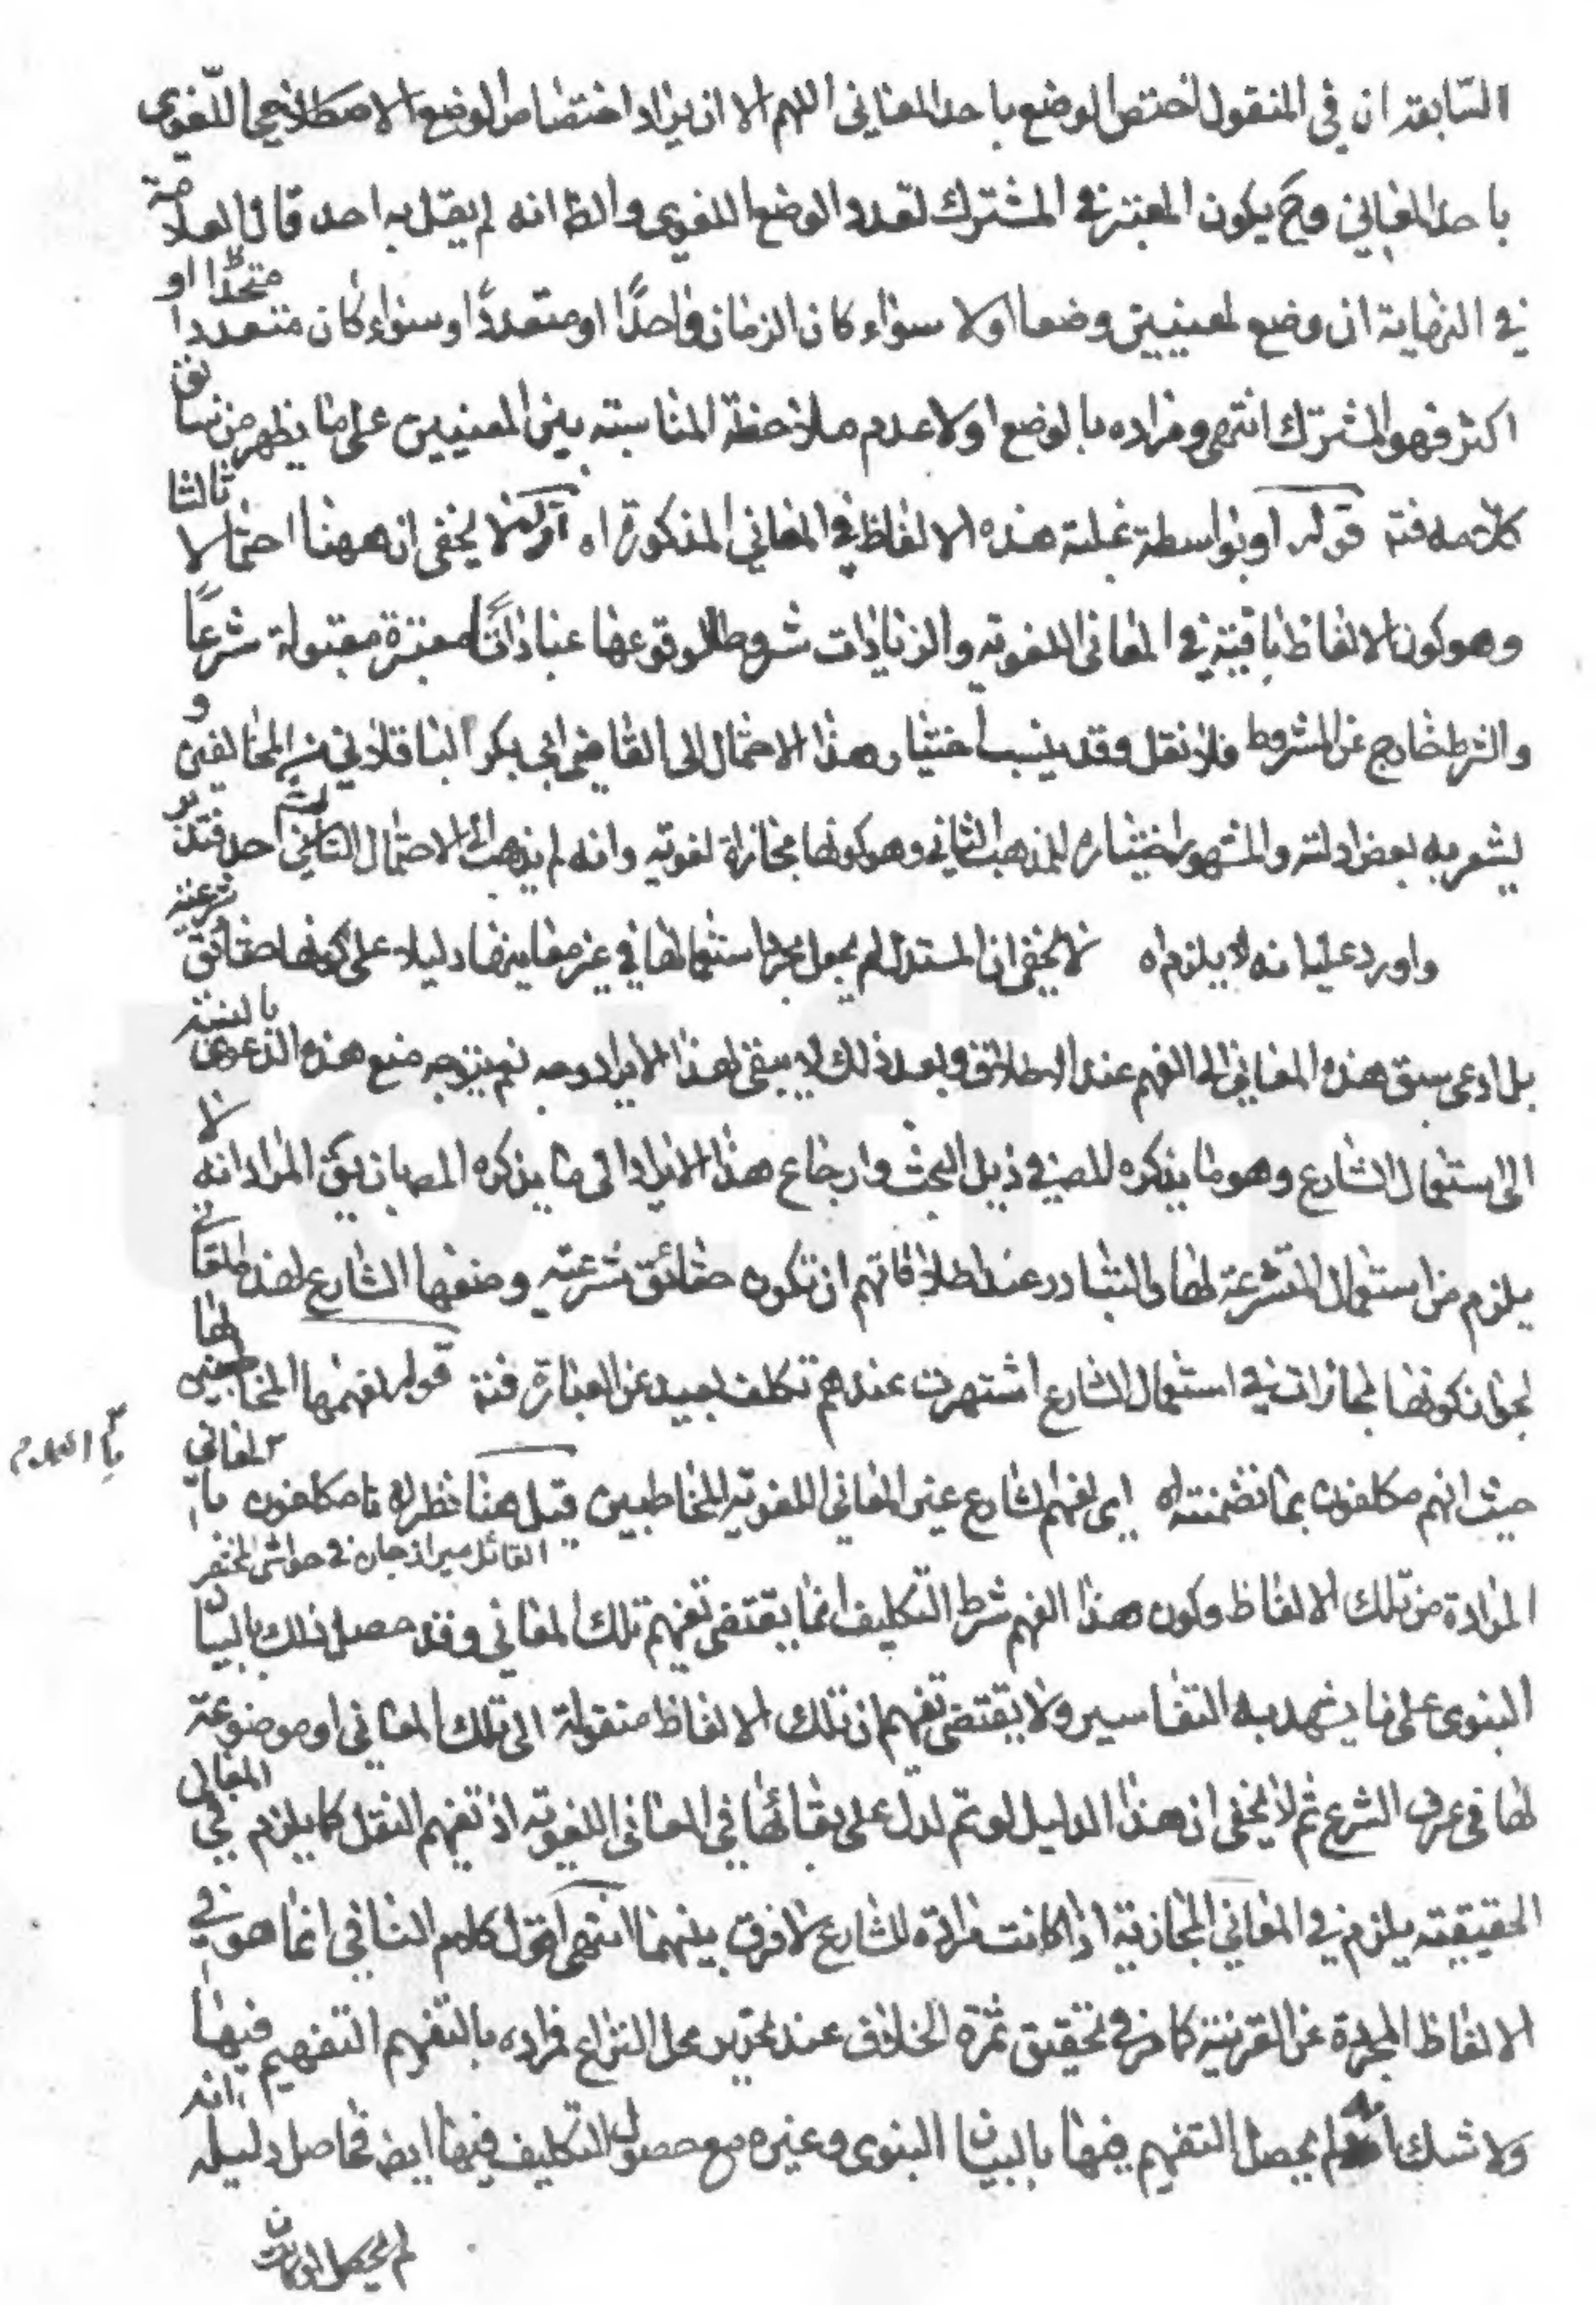 السابقة ان في المنقول اختص الوضع باحد المعاني اللهم الا ان يراد اختصاص الوضع الاصطلاحي اللغوي
باحد المعاني وح يكون المعتبر في المشترك تعدد الوضع اللغوي والظ انه لم يقل به احد قال العلامة
في النهاية ان وضع لمعنيين وضعا اولا سواء كان الزمان واحدًا او متعددًا وسواء كان متعددا متحدا او
اكثر فهو المشترك انتهى ومراده بالوضع اولا عدم ملاحظة المناسبته بين المعنيين على ما يظهر من سياق
كلامه فته قوله او بواسطة غلبة هذه الالفاظ في المعاني المذكورة اه لا يخفى ان ههنا احتمالا ثالثا
وهو كون الالفاظ باقية في المعاني اللغوية والزيادات شروطا لوقوعها عبادات معتبرة مقبولة شرعًا
والشرط خارج عن المشروط فلا نقل وقد ينسب اختيار هذا الاحتمال الى القاضي ابي بكر الباقلاني من المخالفين و
يشعر به بعض ادلته والمشهور اختياره المذهب الثاني وهو كونها مجازاة لغوية وانه لم يذهب الى الاحتمال الثالث احد فتدبر
واورد عليه انه لا يلزم اه لا يخفى ان المستدل لم يجعل مجرد استعمالها في غير معانيها دليلا على كونها حقائق شرعية
بل ادعى سبق هذه المعاني الى الفهم عند الاطلاق وبعد ذلك لا يبقى لهذا الايراد وجه نعم يتوجه منع هذه الدعوى بالنسبة
الى استعمال الشارع وهو ما يذكره المصـ في ذيل البحث وارجاع هذا الايراد الى ما يذكره المصـ بان يق المراد انه لا
يلزم من استعمال المتشرعة لها والتبادر عند اطلاقاتهم ان تكون حقائق شرعية وضعها الشارع لهذه المعاني
لجواز كونها مجازات في استعمال الشارع اشتهرت عندهم تكلف بعيد عن العبارة فته قوله لفهمها المخاطبين بها
حيث انهم مكلفون بما تضمنته اه اي لفهم الشارع غير المعاني اللغوية للمخاطبين قيل هنا نظر اه نا مكلفون با المعاني
القائل ميرزا جان في حواشي المختصر
المرادة من تلك الالفاظ وكون هذا الفهم شرط التكليف انما يقتضي تفهيم تلك المعاني وقد حصل ذلك بالبيان
النبوي على ما يشهد به التفاسير ولا يقتضي تفهيم ان تلك الالفاظ منقولة الى تلك المعاني او موضوعة
لها في عرف الشرع ثم لا يخفى ان هذا الدليل لو تم لدل على بقائها في المعاني اللغوية اذ تفهيم النقل كما يلزم في المعاني
الحقيقية يلزم في المعاني المجازية اذا كانت مرادة للشارع لا فرق بينهما انتهى اقول كلام النافي انما هو في
الالفاظ المجردة عن القرينة كما مر في تحقيق ثمرة الخلاف عند تحرير محل النزاع فمراده بالتفهيم التفهيم فيها
ولا شك انه لم يحصل التفهيم فيها بالبيان النبوي وغيره مع حصول التكليف فيها ايض فحاصل دليله انه